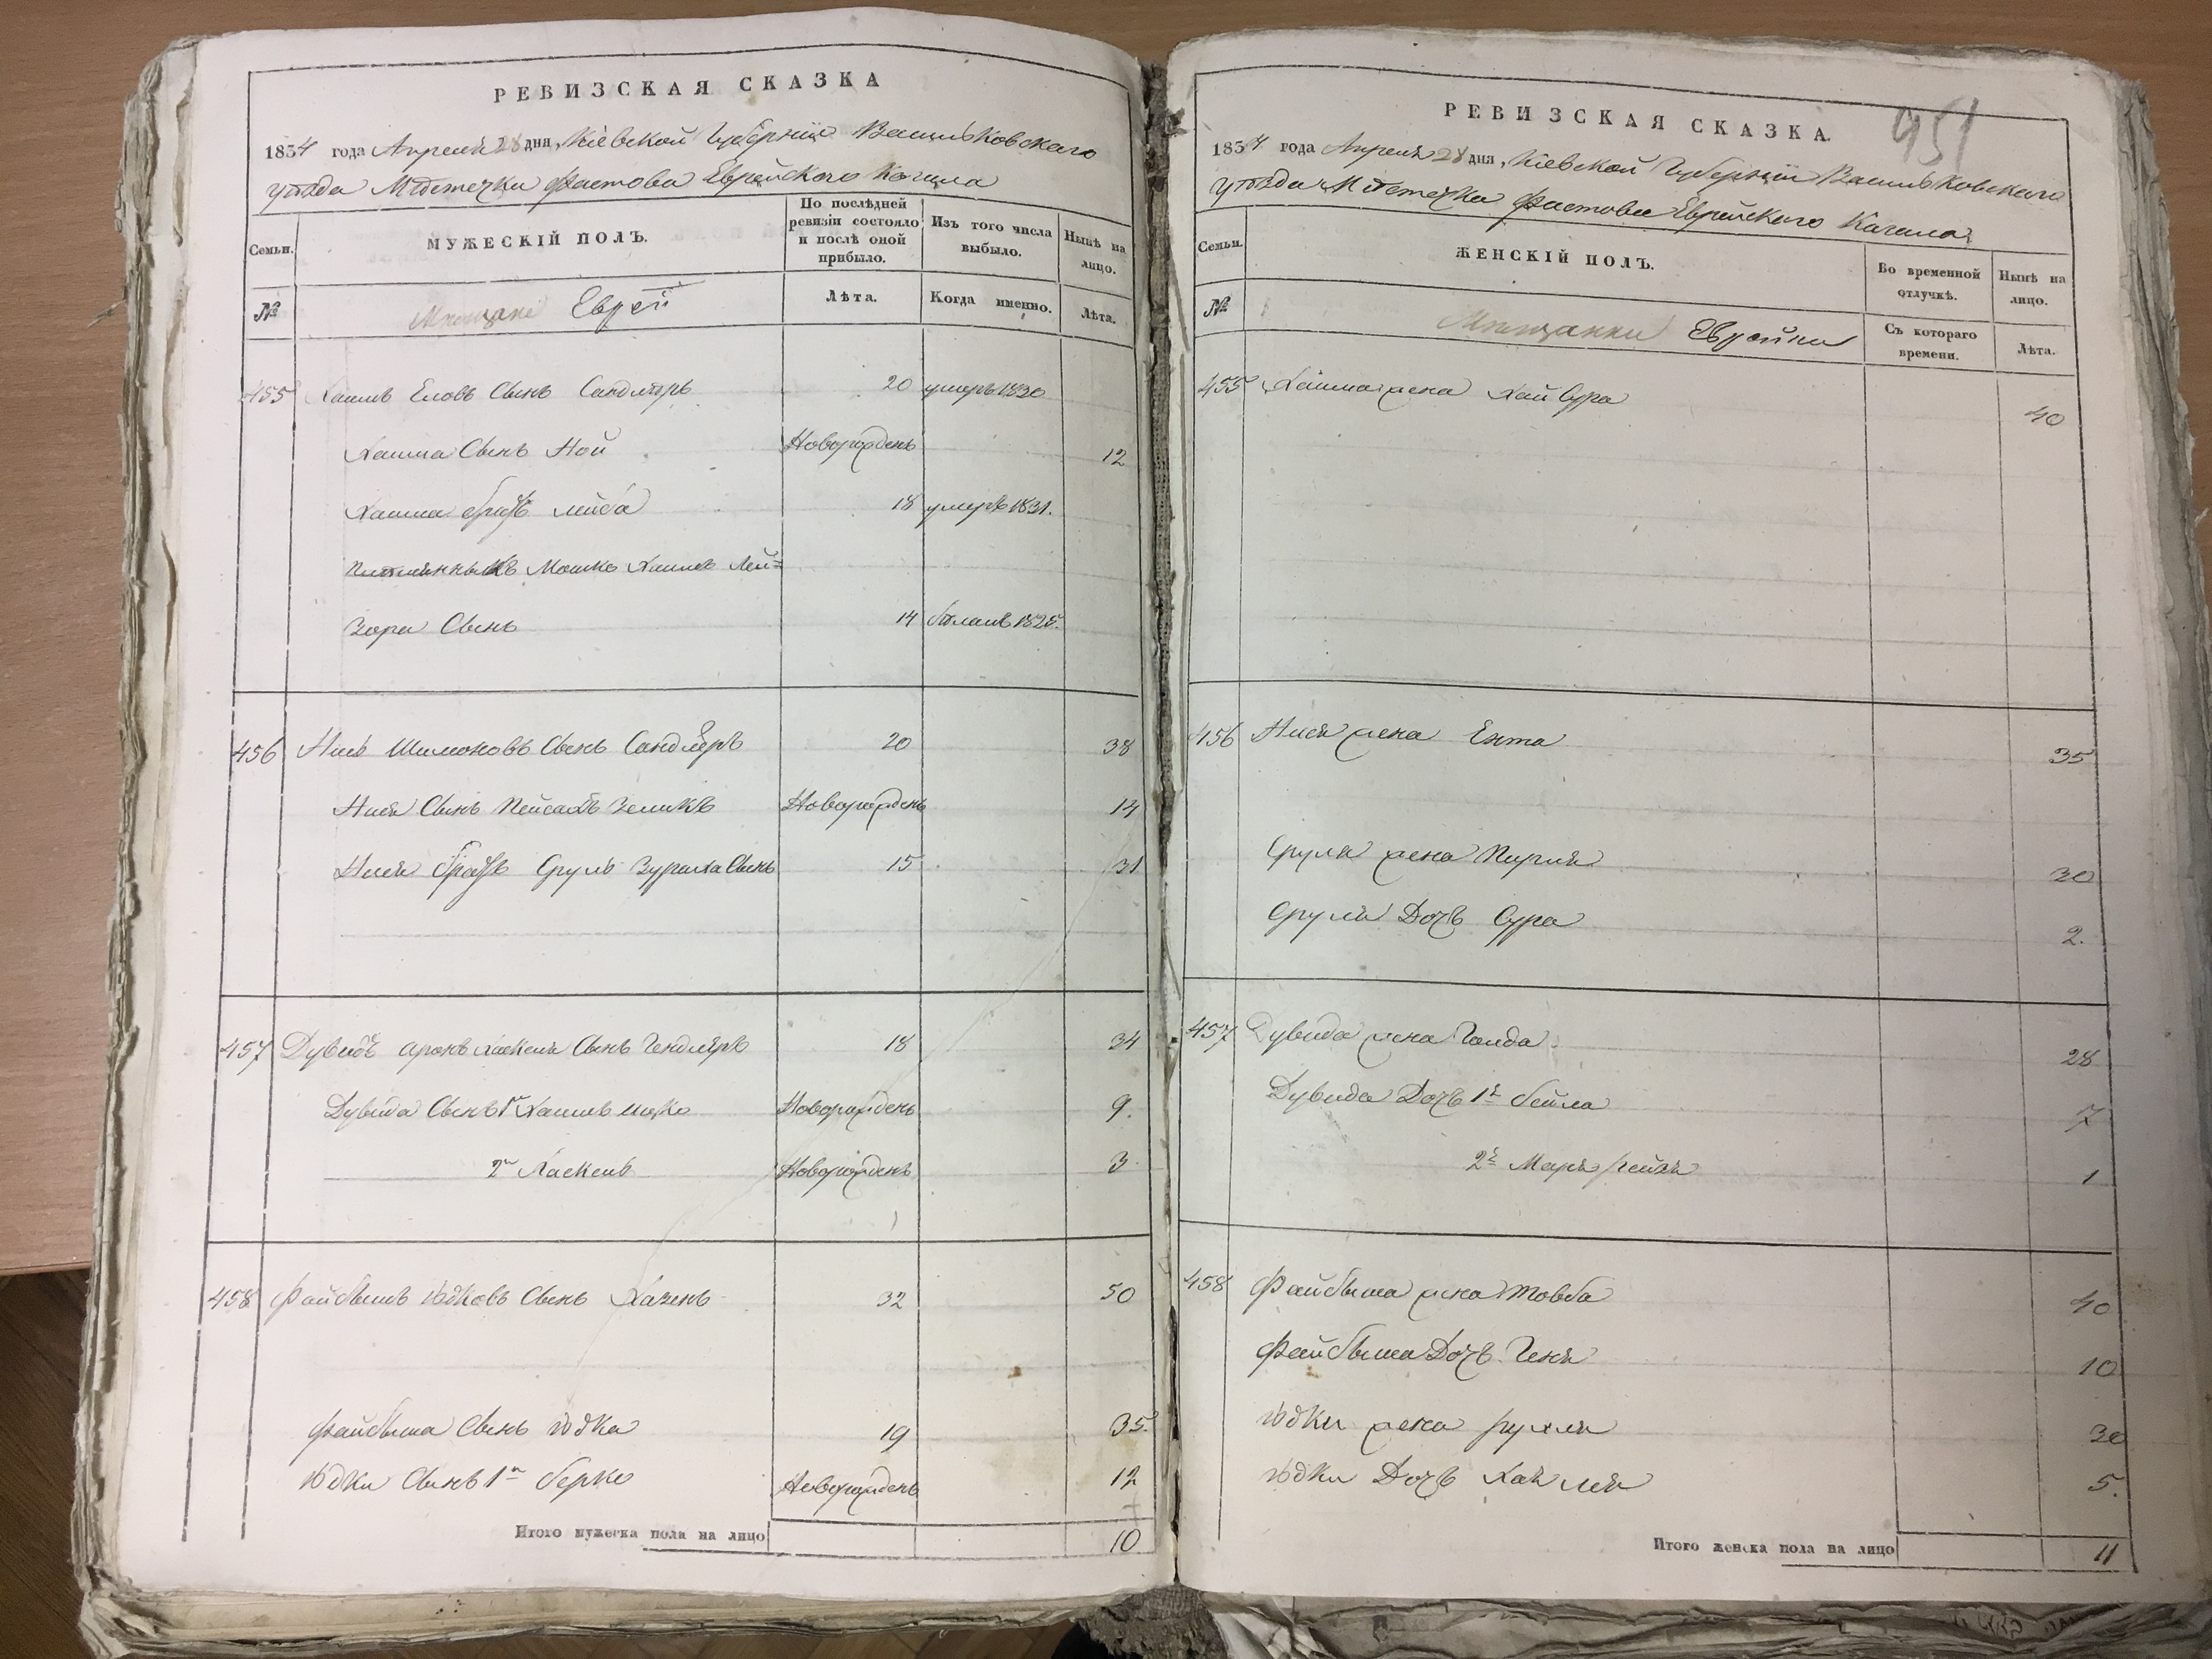 РЕВИЗСКАЯ СКАЗКА
1834 года Апреля 28 дня, Кіевской Губерніи Васильковского
уѣзда Мѣстечка Фастова Еврейского Кагала
Семьи.
МУЖЕСКІЙ ПОЛЪ.
По послѣдней ревизіи состояло и послѣ оной прибыло.
Изъ того числа выбыло.
Нынѣ на лицо.
№
Мещане Евреи
Лѣта.
Когда именно.
Лѣта.
455 Хаимъ Сынъ Сандлеръ 20 умеръ 1830
Хаима Сынъ Ной Новорожденъ 12
Хаима братъ Лейба 18 умеръ 1831.
Племянникъ Мошко Хаимъ Лей=
зора Сынъ 14 1828.
456 Шимоновъ Сынъ Сандлеръ 20 38
Сынъ Пейсахъ Зеликъ Новорожденъ 14
братъ Сруль Сынъ 15 31
457 Дувидъ Аронъ Хаскеля Сынъ Гендлеръ 18 34
Дувида Сынъ 1й Хаимъ Ицко Новорожденъ 9.
2й Хаскель Новорожденъ 3
458 Файбышъ Юдковъ Сынъ Хазенъ 32 50
Файбыша Сынъ Юдка 19 35.
Юдки Сынъ 1й Берко Новорожденъ 12
Итого мужеска пола на лицо 10
РЕВИЗСКАЯ СКАЗКА.
951
1834 года Апреля 28 дня, Кіевской Губерніи Васильковского
уѣзда Мѣстечка Фастова Еврейского Кагала
Семьи.
ЖЕНСКІЙ ПОЛЪ.
Во временной отлучкѣ.
Нынѣ на лицо.
№
Мещанки Еврейки
Съ котораго времени.
Лѣта.
455 Хаима жена Хая Сура 40
456 жена Ента 35
Сруля жена Перля 30
Сруля Дочь Сура 2.
457 Дувида жена Голда 28
Дувида Дочь 1я Бейла 7
2я Марья Рейзя 1
458 Файбыша жена Товба 40
Файбыша Дочь Геня 10
Юдки жена Рухля 30
Юдки Дочь Хая Лея 5.
Итого женска пола на лицо 11